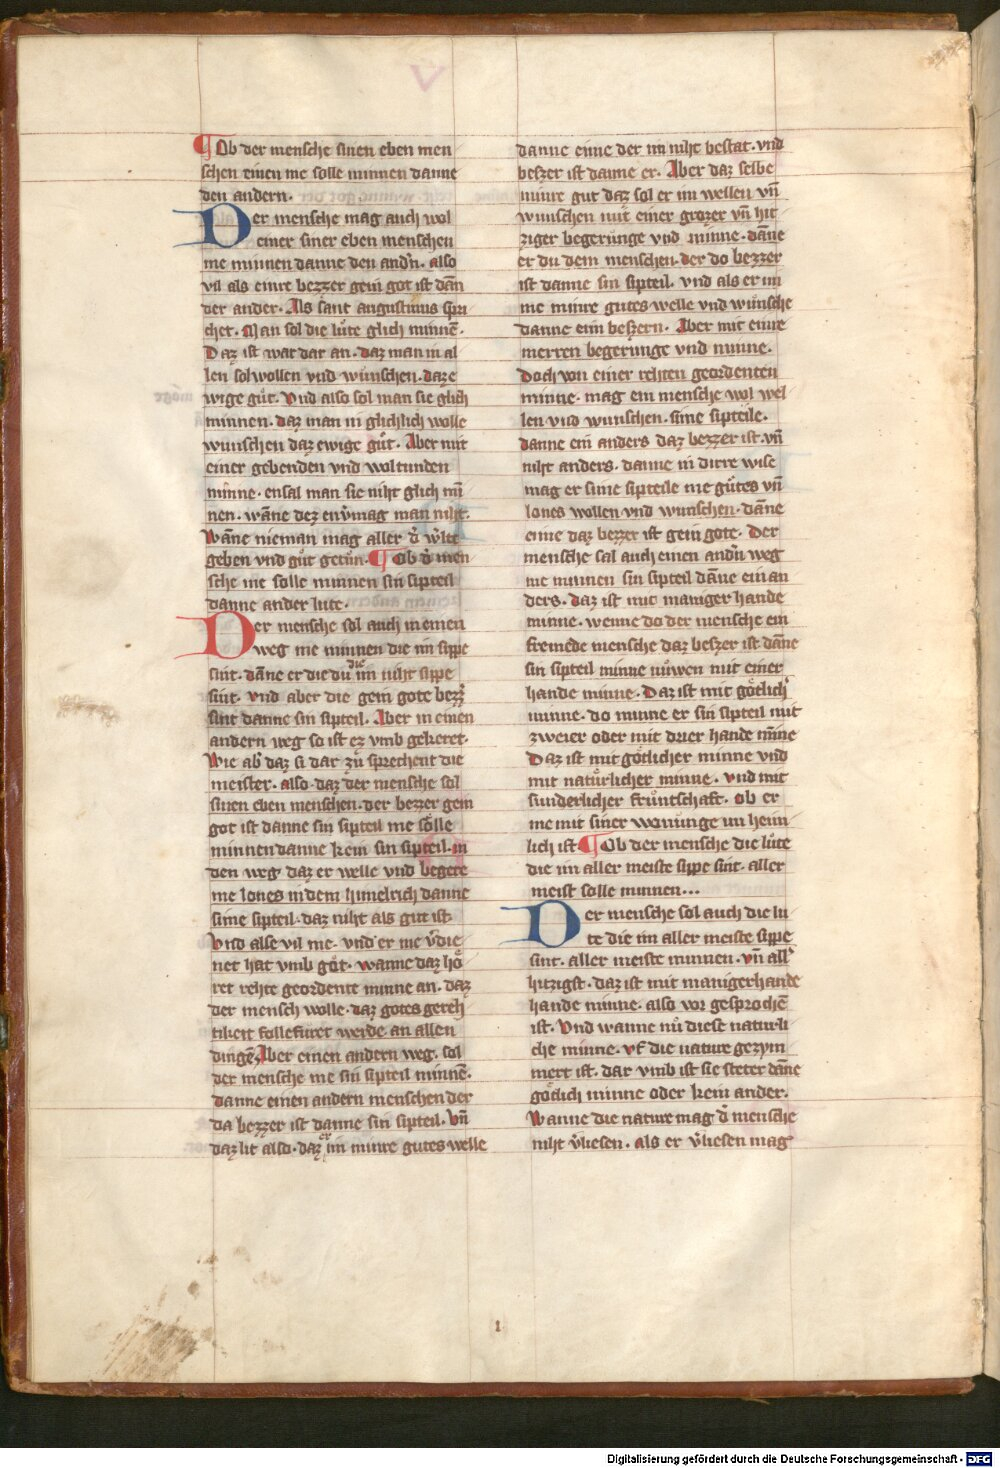 V
¶ Ob der mensche sinen eben men
schen einen me solle minnen danne
den andern.
Der mensche mag auch wol
einer siner eben menschen
me minnen danne den andn̄. also
vil als einre bezzer gein got ist dān
der ander. Als sant augustinus spri
chet. Man sol die lu̍te glich minnē.
Daz ist war dar an. daz man in al
len sol wollen vnd wünschen. daz e
wige gůt. Vnd also sol man sie glich
minnen. daz man in glichlich wolle
wunschen daz ewige gůt. Aber mit
einer gebenden vnd woltunden
minne. ensal man sie niht glich mī
nen. wāne dez env̍mag man niht.
Wāne nieman mag aller d̍ w̍lte
geben vnd gůt getůn. ¶ Ob d̍ men
sche me solle minnen sin sipteil
danne ander lute.
Der mensche sol auch in einen
weg me minnen die im sippe
sint. dāne er die du die im niht sippe
sint. vnd aber die gein gote bezz̍
sint danne sin sipteil. Aber in einen
andern weg so ist ez vmb gekeret.
Wie ab̍ daz si dar zů sprechent die
meister. also. daz der mensche sol
sinen eben menschen. der bezzer gein
got ist danne sin sipteil me sölle
minnen danne kein sin sipteil. in
den weg daz er welle vnd begere
me lones in dem himelrich danne
sime sipteil. daz niht als gut ist.
Vnd alse vil me. vnd er me v̍die
net hat vmb got. wanne daz hö
ret rehte geordente minne an. daz
der mensch wolle. daz gotes gereh
tikeit follefüret werde an allen
dingē. Aber einen andern weg. sol
der mensche me sin sipteil minnē.
danne einen andern menschen der
da bezzer ist danne sin sipteil. Vn̄
daz lit also. daz er im minre gutes welle
danne eime der im niht bestat. vnd
beszer ist danne er. Aber daz selbe
minre gut daz sol er im wellen vn̄
wunschen mit einer grozer vn̄ hit
ziger begerunge vnd minne. dāne
er du dem menschen. der do bezzer
ist danne sin sipteil. vnd als er im
me minre gutes welle vnd wünsche
danne eim beszern. Aber mit eime
merren begerunge vnd minne.
Doch von einer rehten geordenten
minne. mag ein mensche wol wel
len vnd wunschen. sime sipteile.
danne eim anders daz bezzer ist. vn̄
niht anders. danne in dirre wise
mag er sime sipteile me gůtes vn̄
lones wollen vnd wunschen. dāne
eime daz bezzer ist gein gote. Der
mensche sal auch einen andn̄ weg
me minnen sin sipteil dāne ein an
ders. daz ist mit maniger hande
minne. wenne do der mensche ein
fremede mensche daz beszer ist dāne
sin sipteil minne nůwen mit einer
hande minne. Daz ist mit götlich̍
minne. do minne er sin sipteil mit
zweier oder mit drier hande mīne
Daz ist mit götlicher minne vnd
mit natürlicher minne. vnd mit
sunderlicher früntschaft. ob er
me mit siner wonunge im heim
lich ist ¶ Ob der mensche die lüte
die im aller meiste sippe sint. aller
meist solle minnen...
Der mensche sol auch die lu
te die im aller meiste sippe
sint. aller meiste minnen. vn̄ all̍
hitzigst. daz ist mit manigerhande
hande minne. also vor gesprochē
ist. Vnd wanne nů diese naturli
che minne. vf die nature gezym
mert ist. dar vmb ist sie steter dāne
götlich minne oder kein ander.
Wanne die nature mag d̍ mensche
niht v̍liesen. als er v̍liesen mag
1
Digitalisierung gefördert durch die Deutsche Forschungsgemeinschaft - DFG